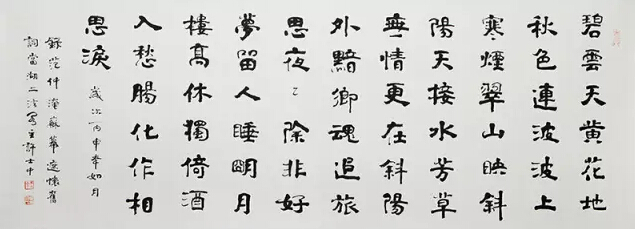 碧雲天黄花地
秋色連波波上
寒煙翠山映斜
陽天接水芳草
無情更在斜陽
外黯鄉魂追旅
思夜〻除非好
夢留人睡明月
樓高休獨倚酒
入愁腸化作相
思淚 歲次丙申春如月
錄范仲淹蘇幕遮懷舊
詞當湖二主許士中